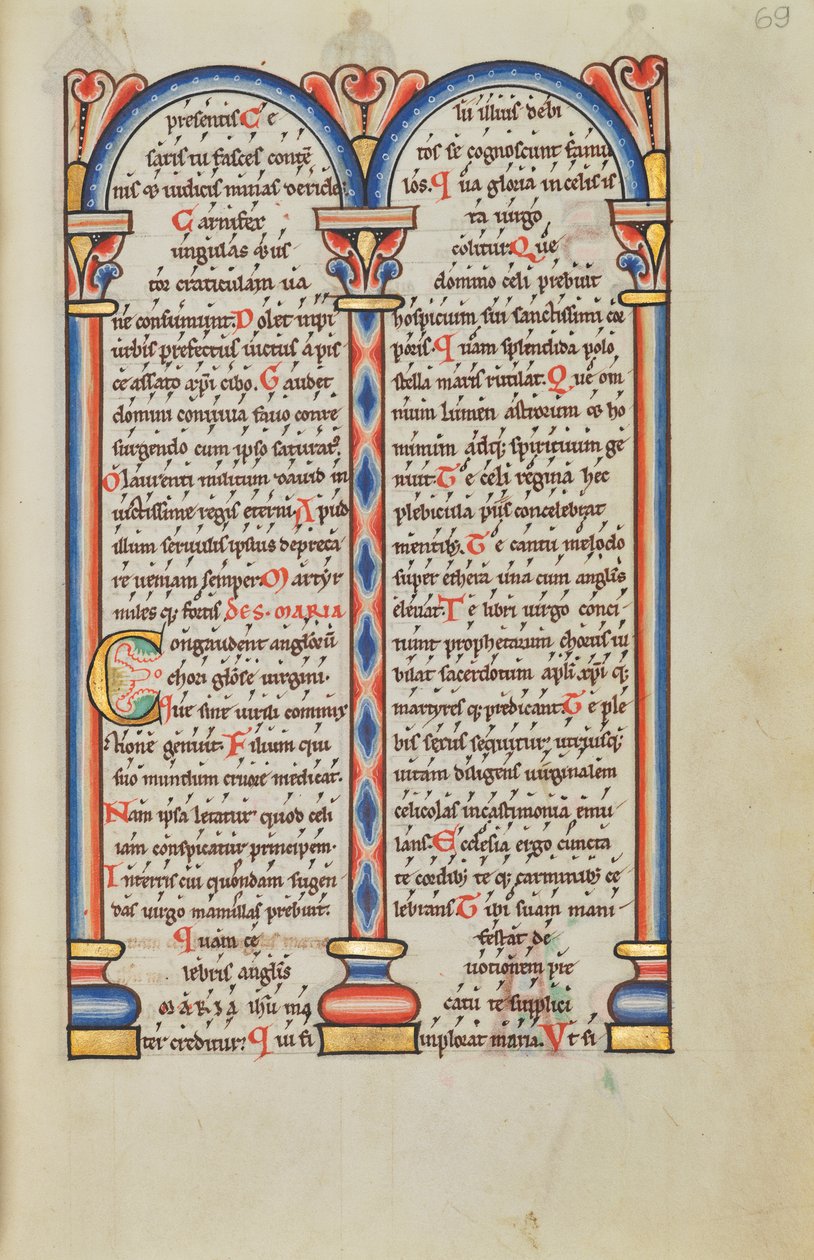 69
presentis C e
saris tu fasces contē
nis & iudicis minas derides.
Carnifex
ungulas & us
tor craticulam ua
ne consumunt. Dolet impi
urbis prefectus uictus a pis
ce assato xp̄i cibo. Gaudet
domini conuiua fauo conre
surgendo cum ipso saturat᷒.
O laurenti militum dauid in
uictissime regis eterni. Apud
illum seruulis ipsius depreca
re ueniam semper. Martyr
miles q; fortis DE S. MARIA
Congaudent angl̄orū
chori gl̄ose uirgini.
Que sine uirili commix
tione genuit. Filium qui
suo mundum cruore medicat.
Nam ipsa letatur quod celi
iam conspicatur principem.
In terris cui quondam sugen
das uirgo mamillas prebuit.
Quam ce
lebris angl̄is
MARIA ihu ma
ter creditur. Qui fi
lii illius debi
tos se cognoscunt famu
los. Qua gloria in celis is
ta uirgo
colitur. Que
domino celi prebuit
hospicium sui sanctissimi cor
poris. Quam splendida polo
stella maris rutilat. Que om
nium lumen astrorum & ho
minum adq; spirituum ge
nuit. Te celi regina hec
plebicula piis concelebrat
mentib;. Te cantu melodo
super ethera una cum angl̄is
eleuat. Te libri uirgo conci
nunt prophetarum chorus iu
bilat sacerdotum apl̄i xp̄i q;
martyres q; predicant. Te ple
bis sexus sequitur utriusq;
uitam diligens uirginalem
celicolas in castimonia emu
lans. Ecclesia ergo cuncta
te cordib; te q; carminib; ce
lebrans. Tibi suam mani
festat de
uotionem pre
catu te supplici
inplorat maria. Ut si